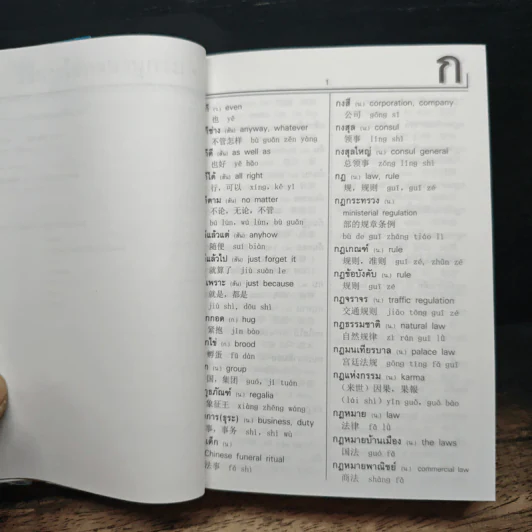 ก
1
even
也 yě
(สัน) anyway, whatever
不管怎样 bù guǎn zěn yàng
(สัน) as well as
也好 yě hǎo
(สัน) all right
行, 可以 xíng, kě yǐ
(สัน) no matter
不论, 无论, 不管
bù lùn, wú lùn, bù guǎn
(สัน) anyhow
随便 suí biàn
(สัน) just forget it
就算了 jiù suàn le
(สัน) just because
就是, 都是
jiù shì, dōu shì
กกกอด (ก.) hug
紧抱 jǐn bào
กกไข่ (ก.) brood
孵蛋 fū dàn
group
国, 集团 guó, jí tuán
regalia
象征王 xiàng zhēng wáng
business, duty
事, 事务 shì, shì wù
(น.)
Chinese funeral ritual
法事 fǎ shì
กงสี (น.) corporation, company
公司 gōng sī
กงสุล (น.) consul
领事 lǐng shì
กงสุลใหญ่ (น.) consul general
总领事 zǒng lǐng shì
กฎ (น.) law, rule
规, 规则 guī, guī zé
กฎกระทรวง (น.)
ministerial regulation
部的规章条例
bù de guī zhāng tiáo lì
กฎเกณฑ์ (น.) rule
规则, 准则 guī zé, zhǔn zé
กฎข้อบังคับ (น.) rule
规则 guī zé
กฎจราจร (น.) traffic regulation
交通规则 jiāo tōng guī zé
กฎธรรมชาติ (น.) natural law
自然规律 zì rán guī lǜ
กฎมนเทียรบาล (น.) palace law
宫廷法规 gōng tíng fǎ guī
กฎแห่งกรรม (น.) karma
(来世) 因果, 果报
(lái shì) yīn guǒ, guǒ bào
กฎหมาย (น.) law
法律 fǎ lǜ
กฎหมายบ้านเมือง (น.) the laws
国法 guó fǎ
กฎหมายพาณิชย์ (น.) commercial law
商法 shāng fǎ